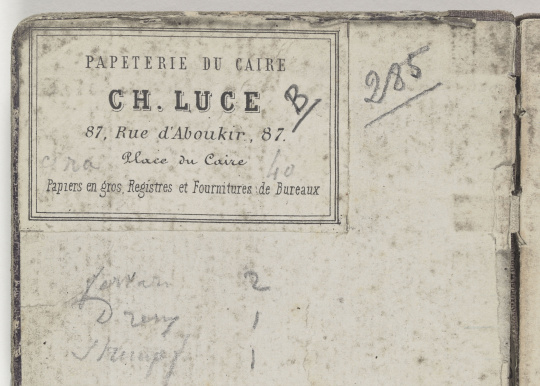 PAPETERIE DU CAIRE
CH. LUCE
B
285
87, Rue d'Aboukir, 87.
Place du Caire
40
Papiers en gros, Registres et Fournitures de Bureaux
2
1
1